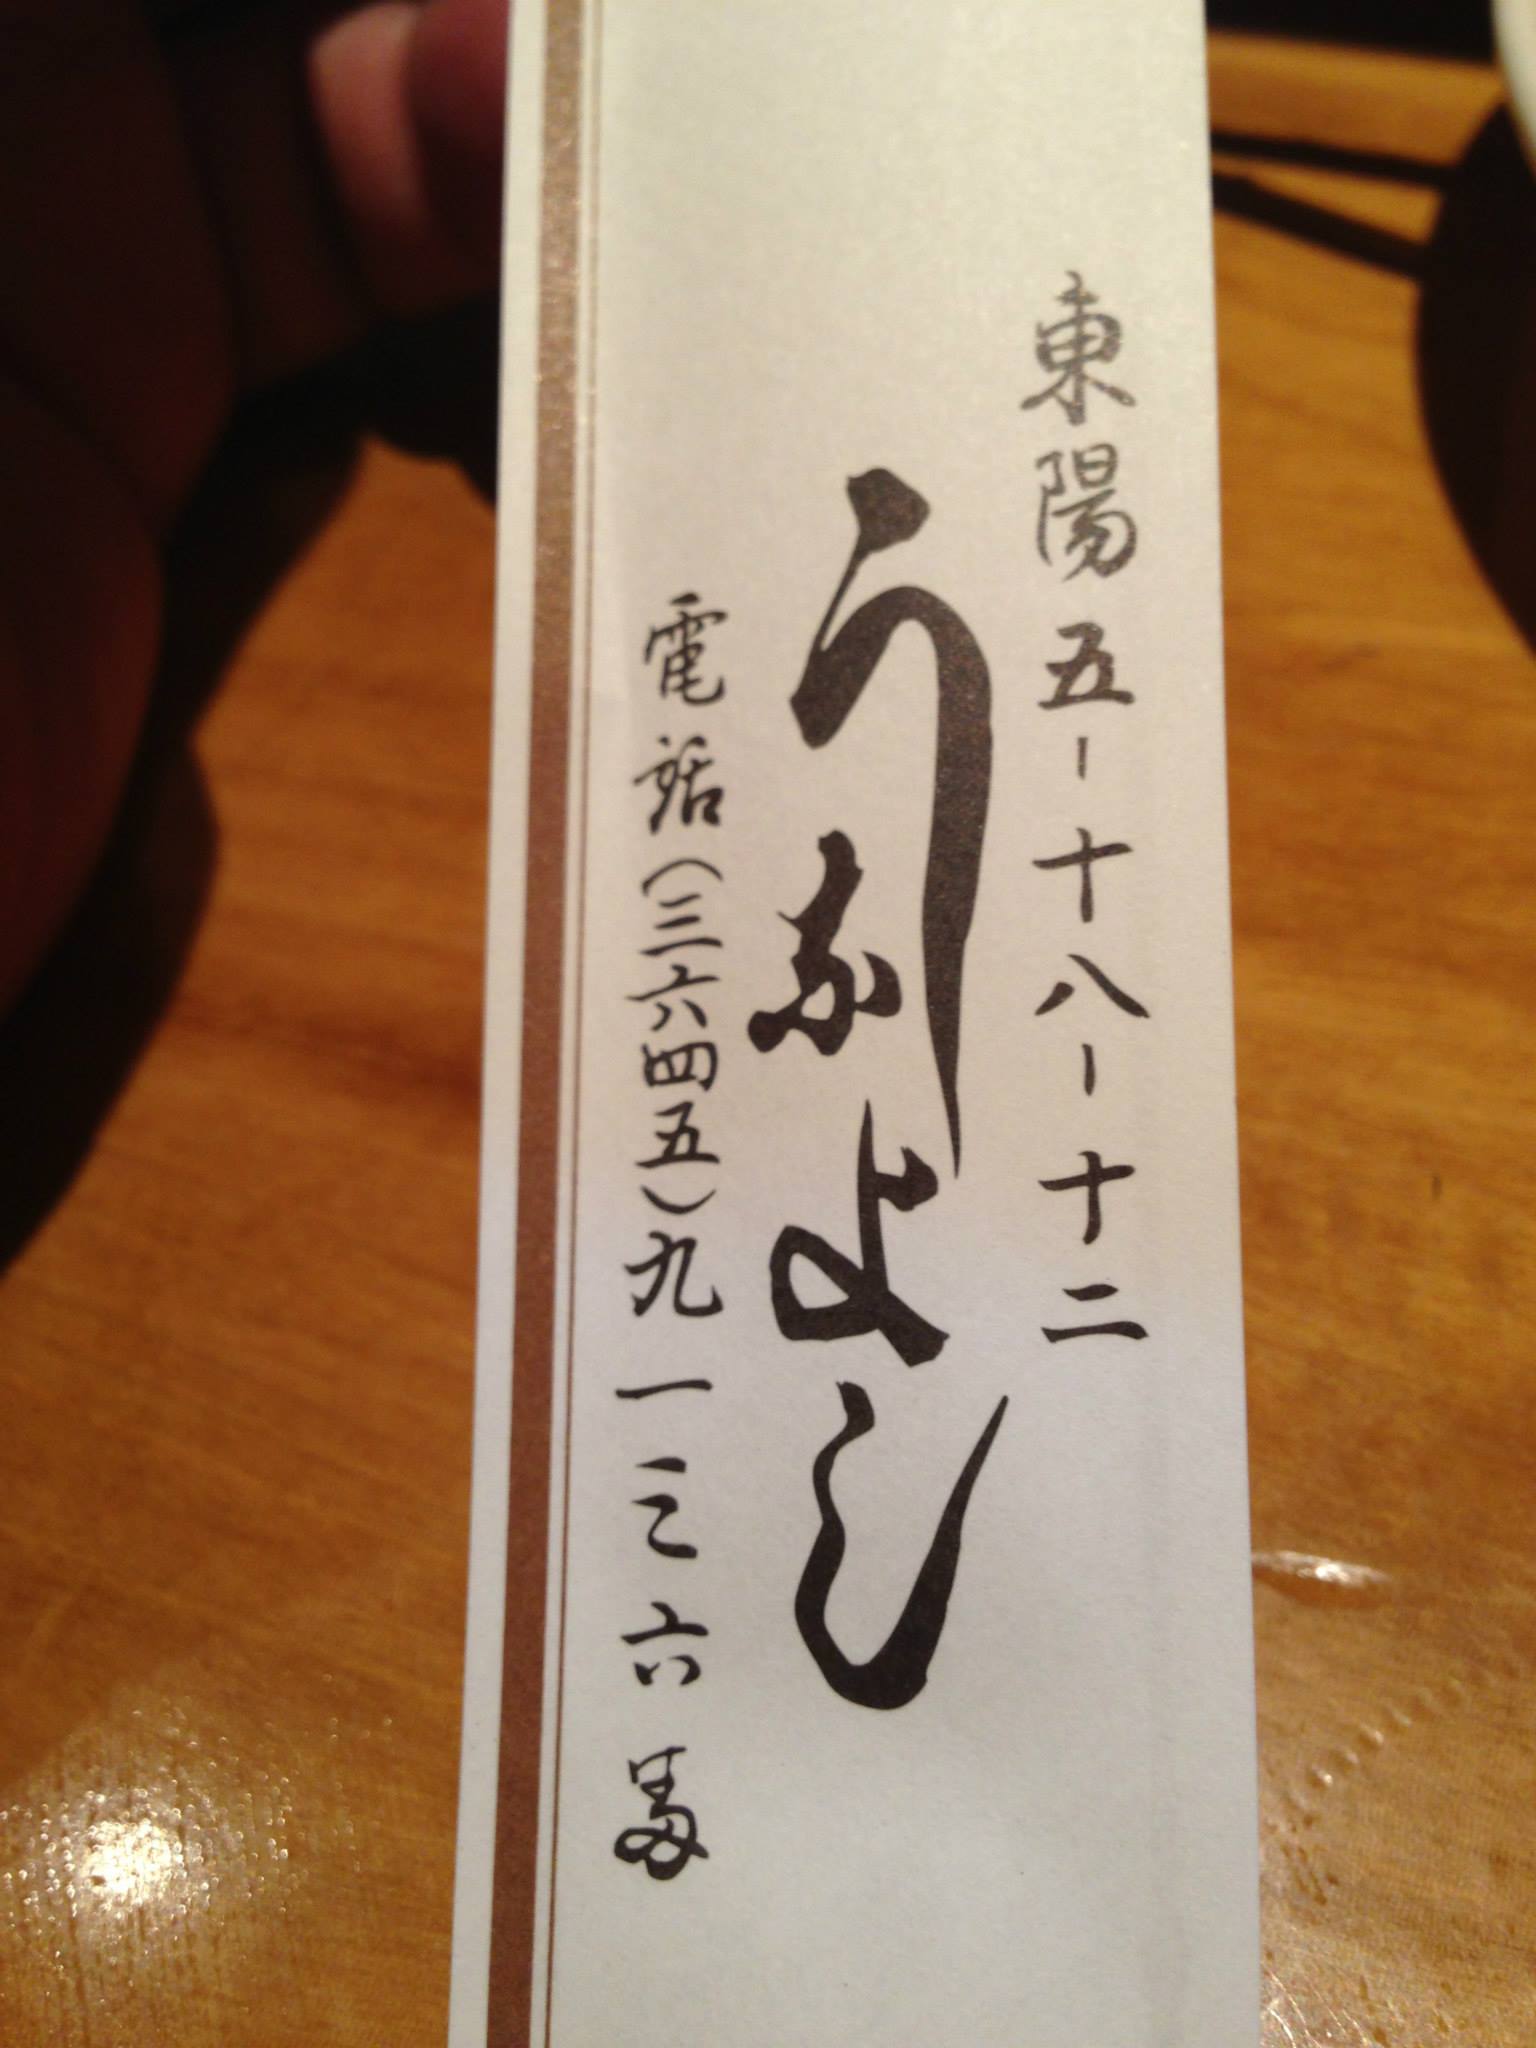 東陽五-十八-十二
うなよし
電話(三六四五)九一三六番